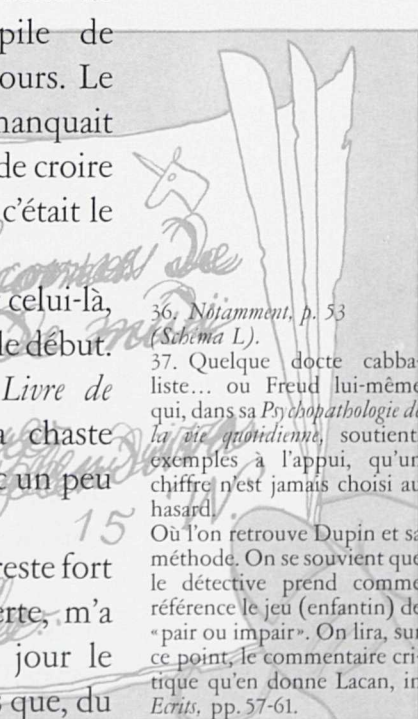 pile de
ours. Le
manquait
de croire
c'était le
celui-là,
le début.
Livre de
chaste
un peu
reste fort
erte, m'a
jour le
que, du
36. Notamment, p. 53
(Schéma L).
37. Quelque docte cabba-
liste... ou Freud lui-même
qui, dans sa Psychopathologie de
la vie quotidienne, soutient
exemples à l'appui, qu'un
chiffre n'est jamais choisi au
hasard.
Où l'on retrouve Dupin et sa
méthode. On se souvient que
le détective prend comme
référence le jeu (enfantin) de
«pair ou impair». On lira, sur
ce point, le commentaire cri-
tique qu'en donne Lacan, in
Ecrits, pp. 57-61.
de
15